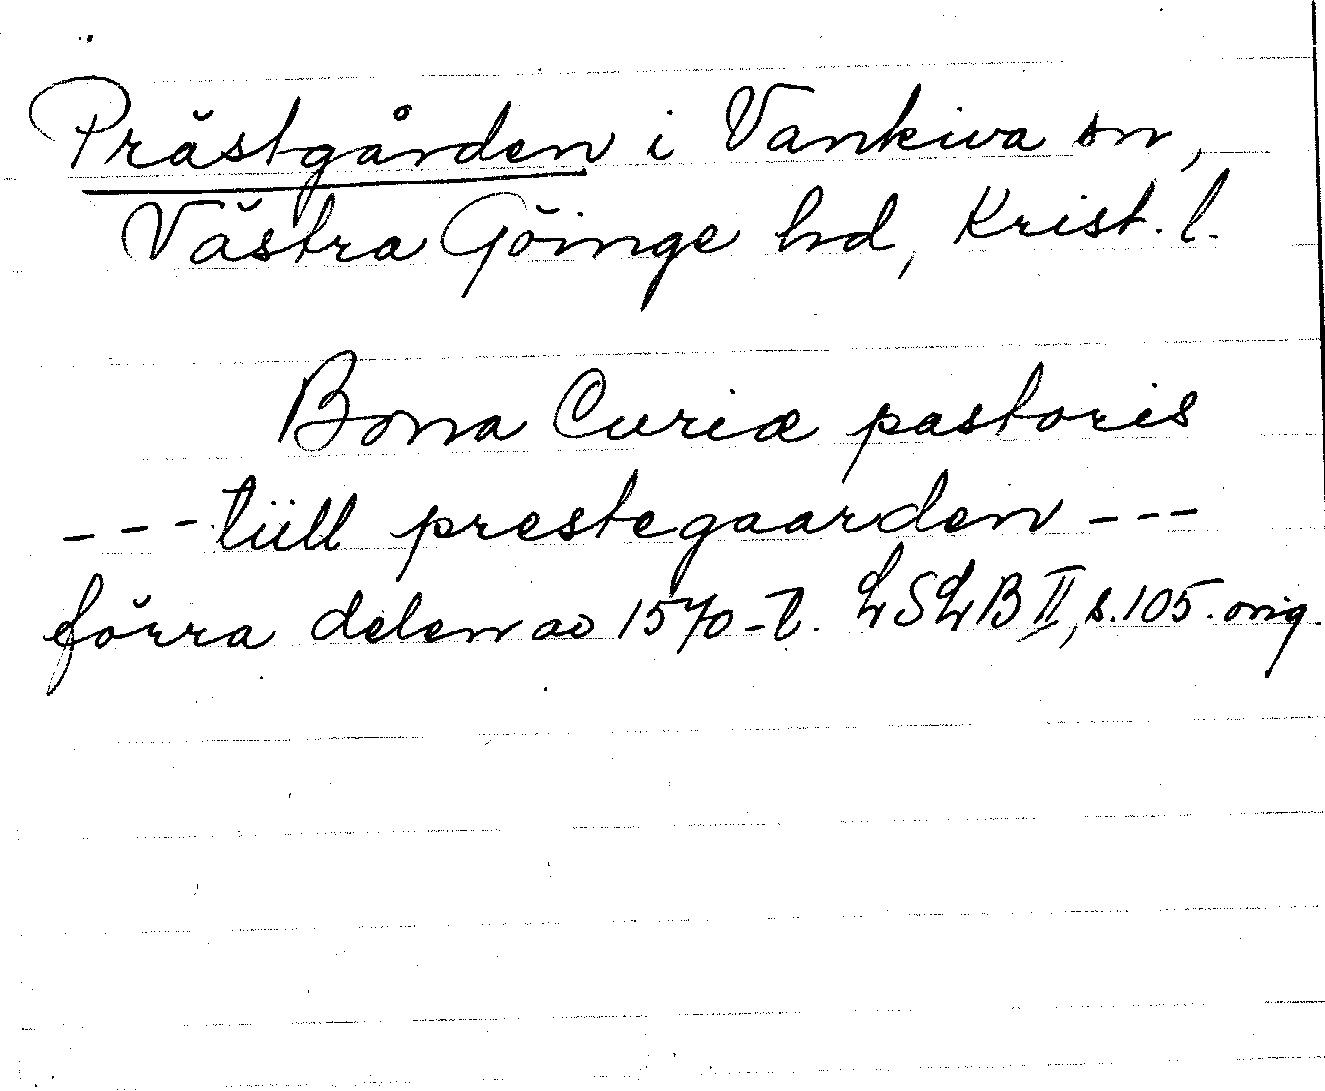 Prästgården i Vankiva sn,
Västra Göinge hd, Krist. l.
Bona Curiæ pastoris
- - - tiill prestegaarden - - -
förra delen av 1570-t. LSLB II, s. 105. orig.